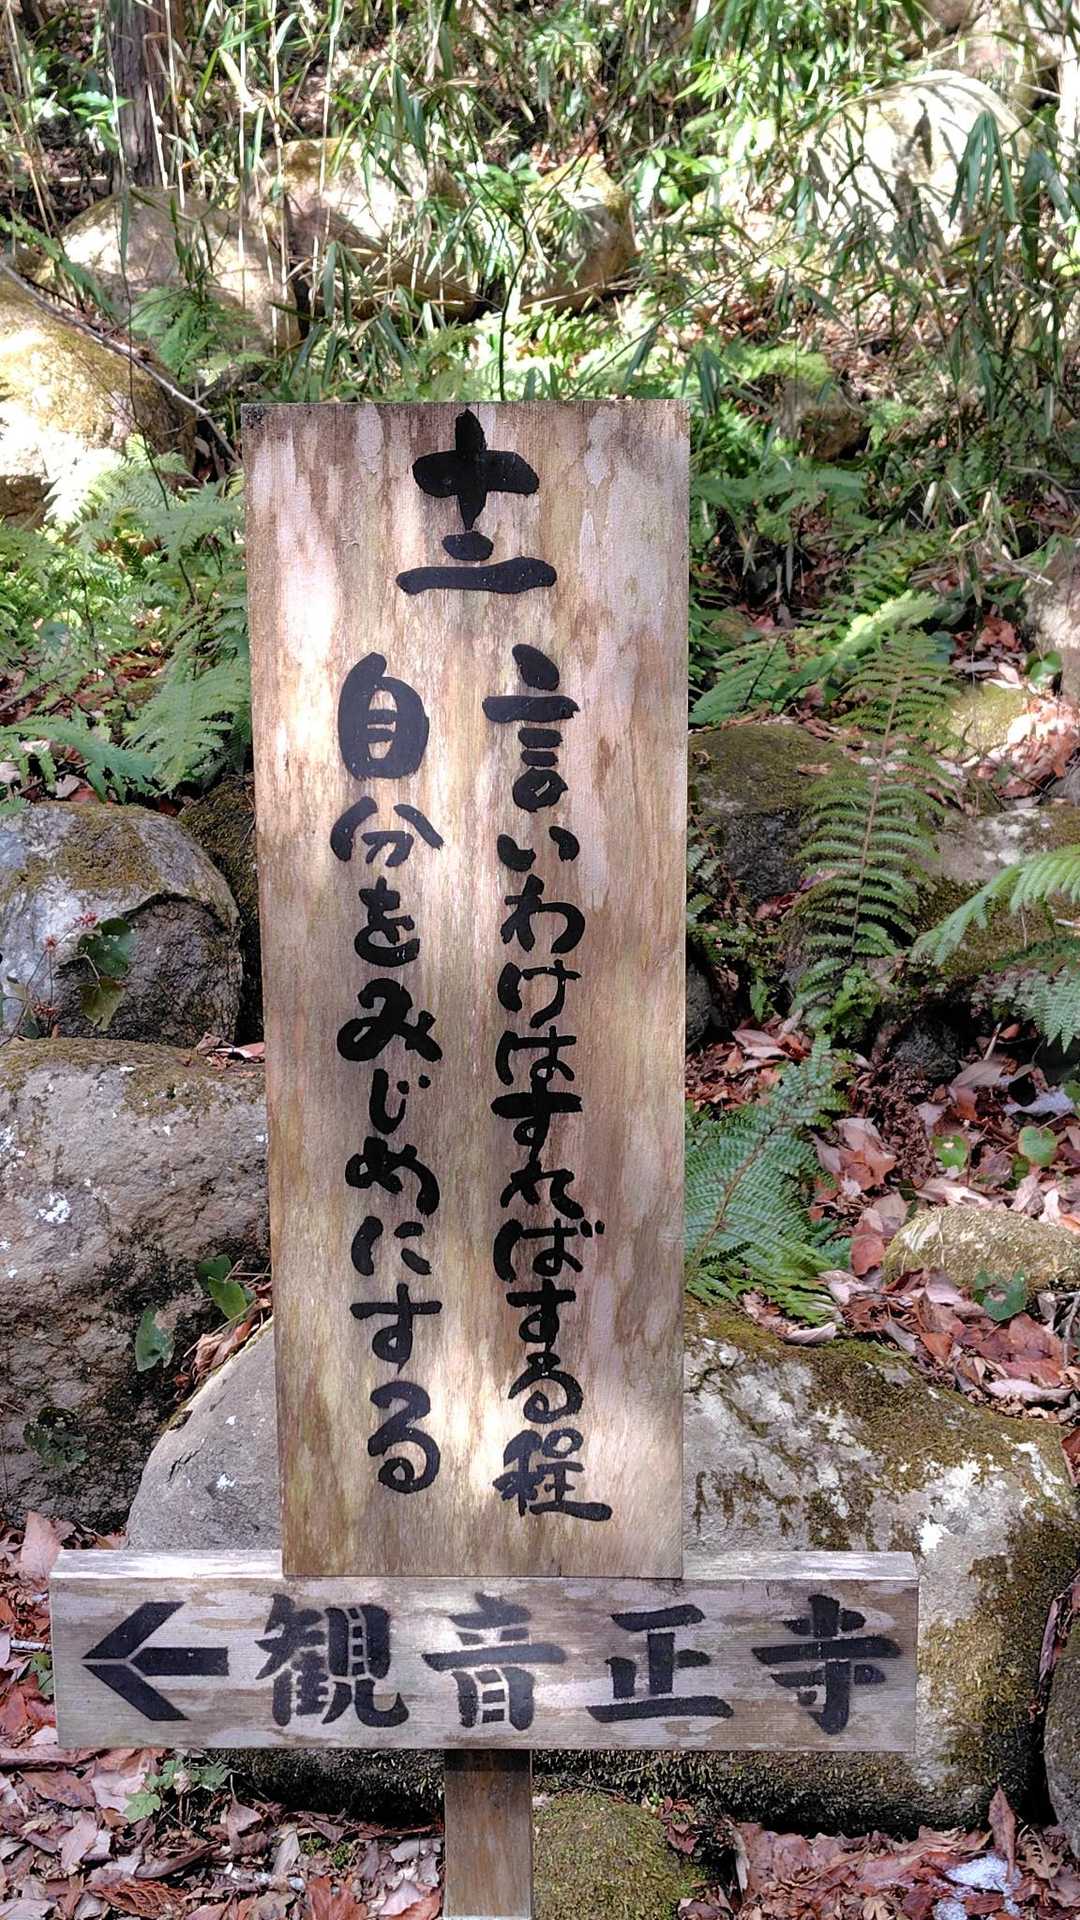 十二
言いわけはすればする程
自分をみじめにする
← 観音正寺